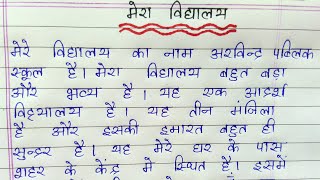 मेरा विद्यालय
मेरे विद्यालय का नाम अरविन्द पब्लिक
स्कूल है। मेरा विद्यालय बहुत बड़ा
और भव्य है। यह एक आदर्श
विद्यालय है। यह तीन मंजिला
है और इसकी इमारत बहुत ही
सुन्दर है। यह मेरे घर के पास
शहर के केंद्र में स्थित है। इसमें